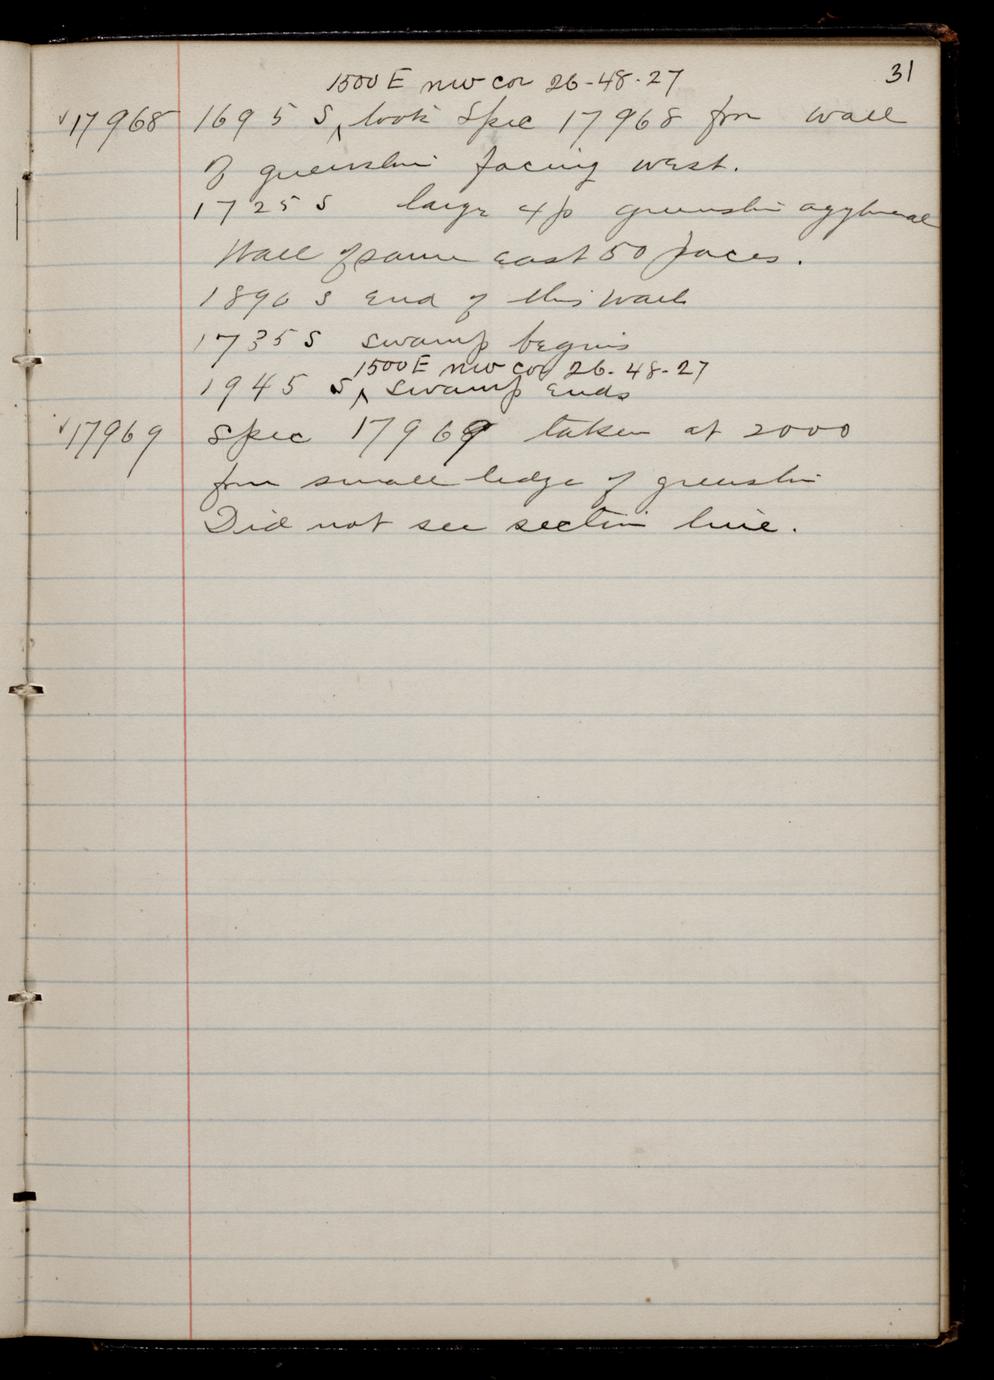 31
1500 E nw cor 26-48-27
✓17968 1695 S ^ took Spec 17968 from wall
of greenstn facing west.
1725 S large o/p greenstn agglomeral
Wall of same east 50 paces.
1890 S End of this wall
1735 S swamp begins
1500 E nw cor 26-48-27
1945 S ^ swamp ends
✓17969 Spec 17969 taken at 2000
from small ledge of greenstn
Did not see section line.